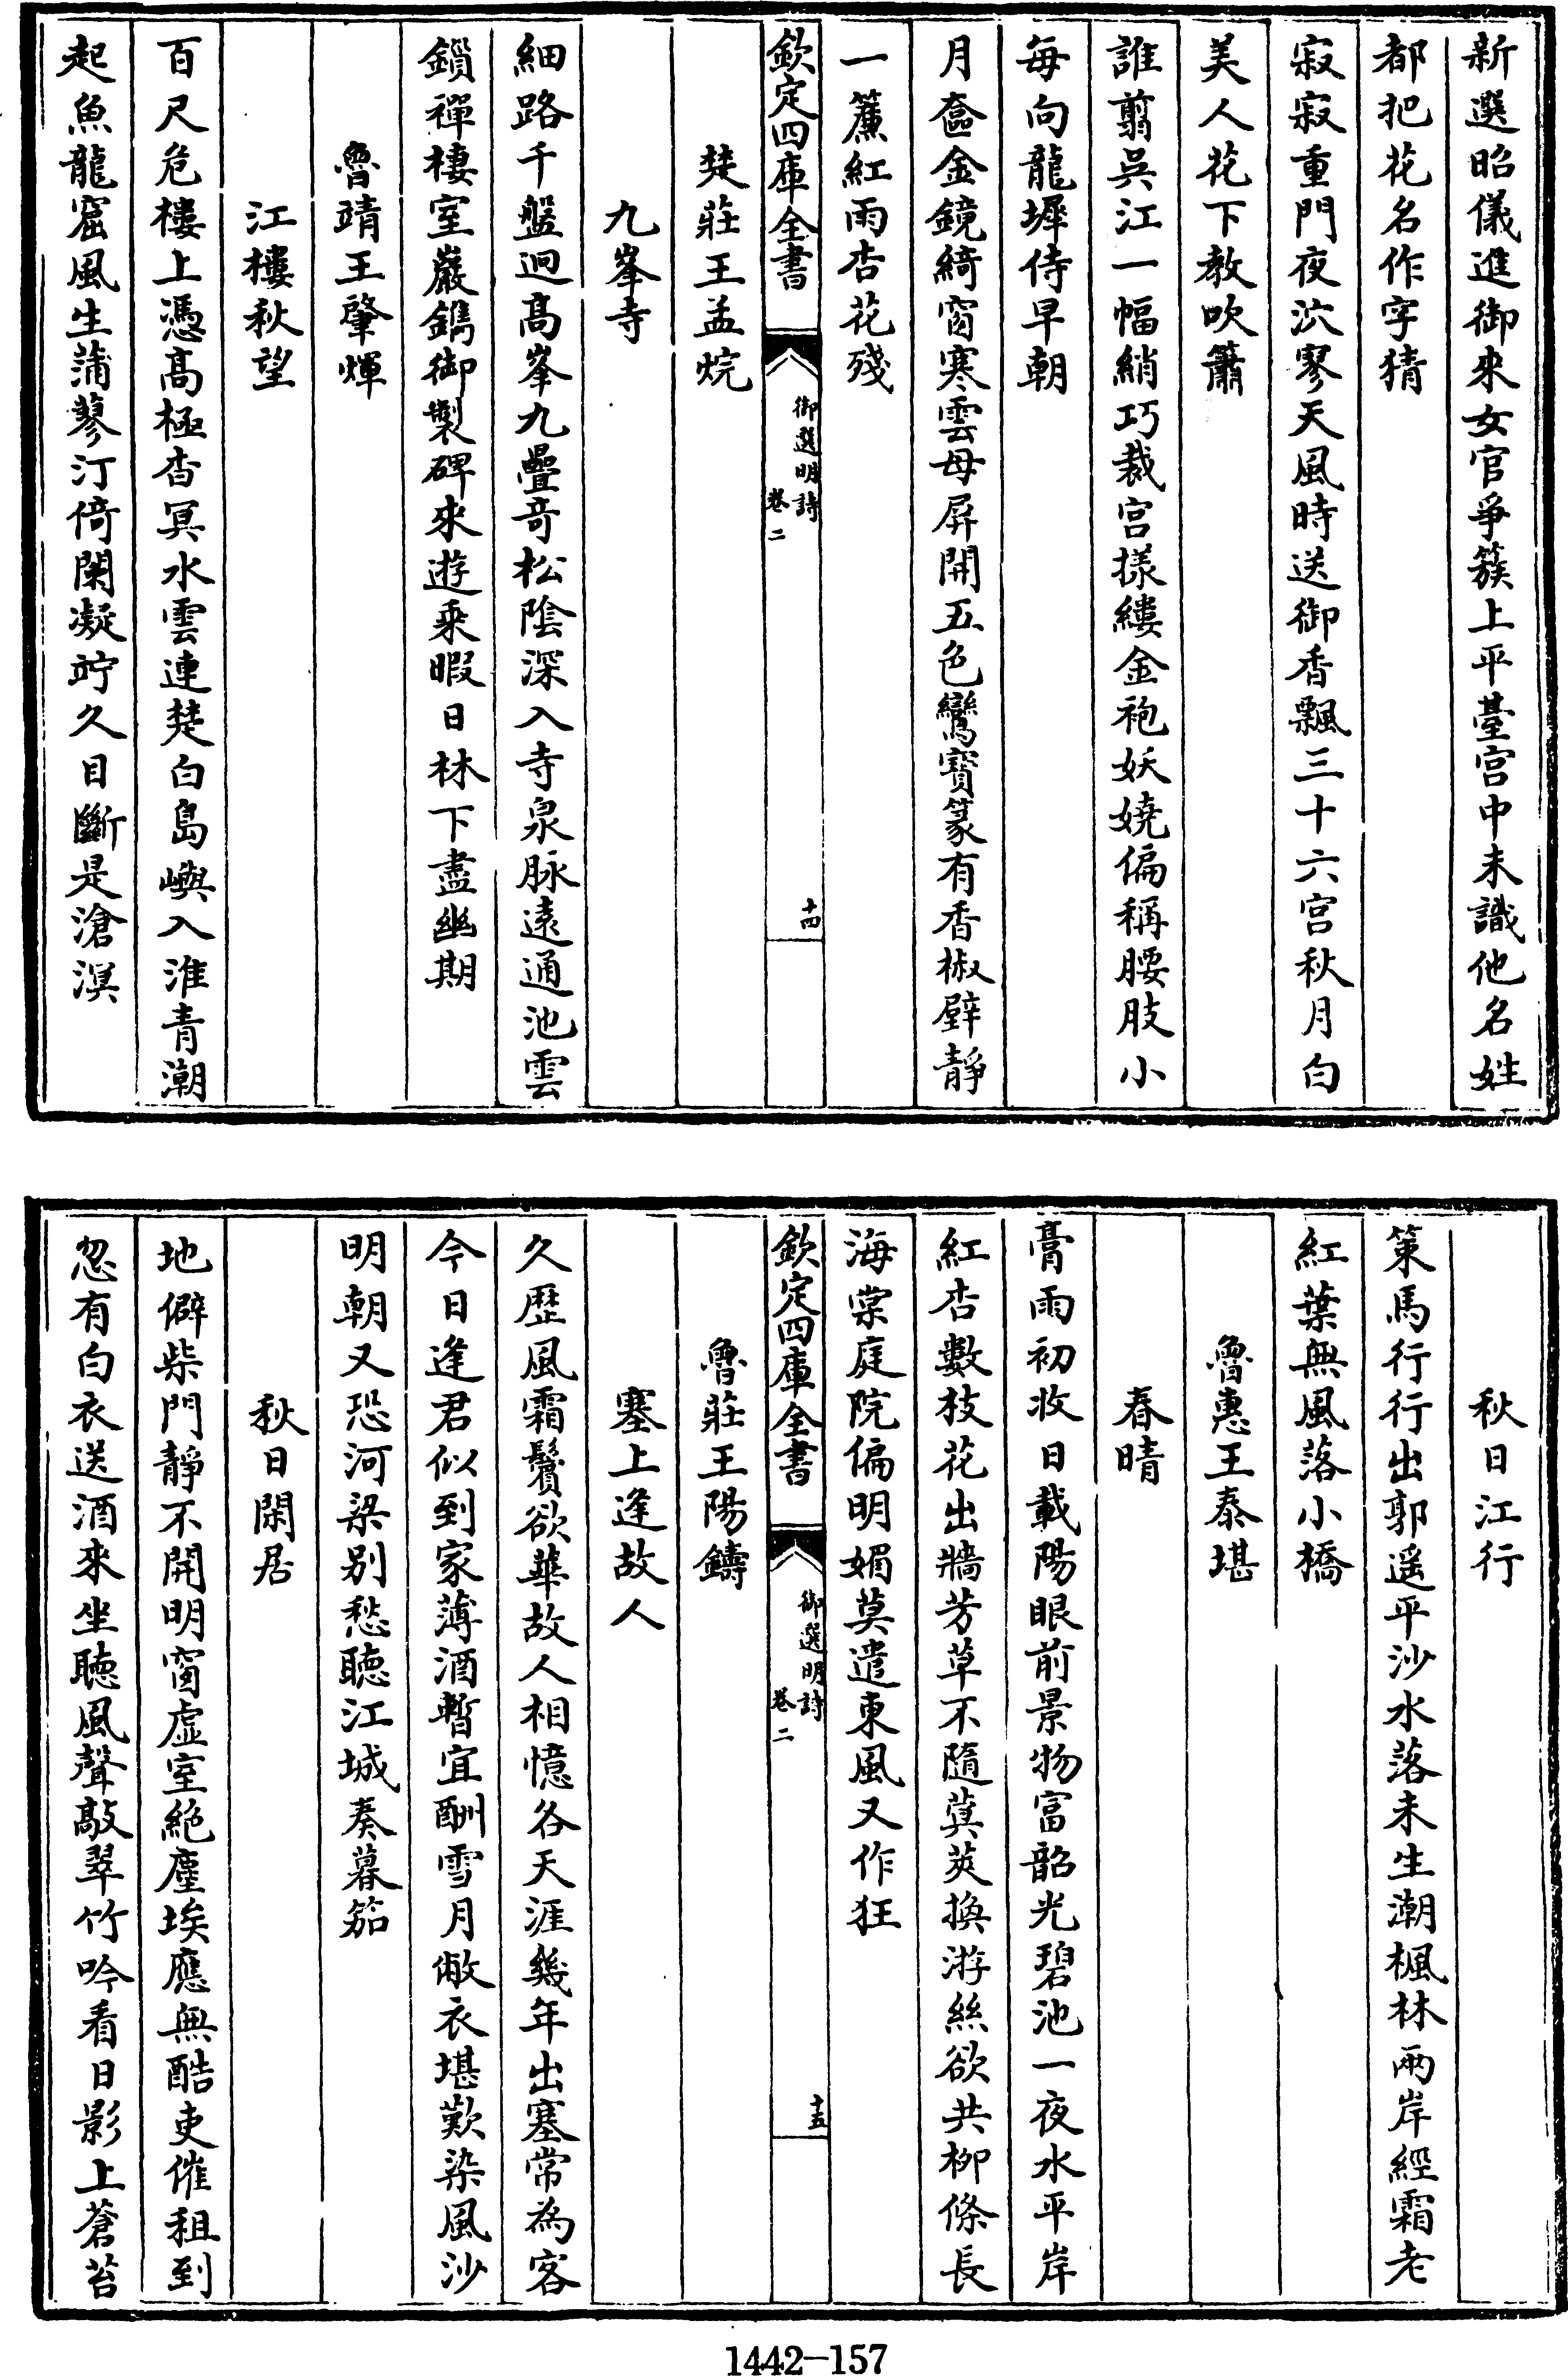 新選昭儀進御來女官爭簇上平臺宫中未識他名姓
都把花名作字猜
寂寂重門夜泬寥天風時送御香飄三十六宫秋月白
美人花下教吹簫
誰翦吳江一幅綃巧裁宫㨾縷金袍妖嬈偏稱腰肢小
每向龍墀侍早朝
月奩金鏡綺窗寒雲母屏開五色鸞寶篆有香椒壁靜
一簾紅雨杏花殘
欽定四庫全書
御選明詩
卷二
十四
楚莊王孟烷
九峯寺
細路千盤迥高峯九疊奇松陰深入寺泉脉遠通池雲
鎖禪棲室巖鐫御製碑來遊乘暇日林下盡幽期
魯靖王肇煇
江樓秋望
百尺危樓上憑高極杳冥水雲連楚白島嶼入淮青潮
起魚龍窟風生蒲蓼汀倚闌凝竚久目斷是滄溟
秋日江行
策馬行行出郭遥平沙水落未生潮楓林兩岸經霜老
紅葉無風落小橋
魯惠王泰堪
春晴
膏雨初收日載陽眼前景物富韶光碧池一夜水平岸
紅杏數枝花出牆芳草不隨蓂莢換游絲欲共柳條長
海棠庭院偏明媚莫遣東風又作狂
欽定四庫全書
御選明詩
卷二
十五
魯莊王陽鑄
塞上逢故人
久歷風霜鬢欲華故人相憶各天涯幾年出塞常為客
今日逢君似到家薄酒暫宜酬雪月敝衣堪歎染風沙
明朝又恐河梁别愁聽江城奏暮笳
秋日閑居
地僻柴門靜不開明窗虚室絶塵埃應無酷吏催租到
忽有白衣送酒來坐聽風聲敲翠竹吟看日影上蒼苔
1442—157